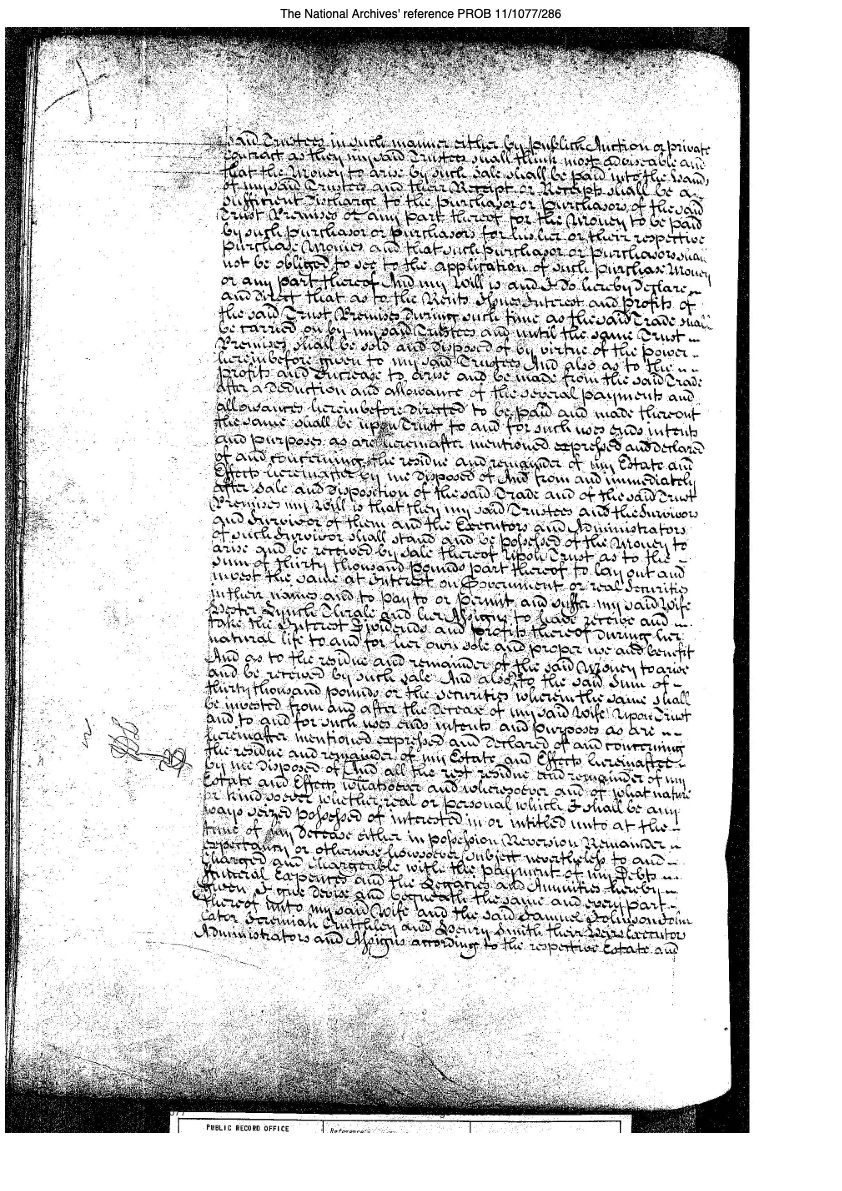 The National Archives' reference PROB 11/1077/286
said Trustees in such manner either by publick Auction or private
contract as they my said Trustees shall think most adviseable and
that the Money to arise by such Sale shall be paid into the hands
of my said Trustees and their Receipt or Receipts shall be a
sufficient discharge to the purchasor or purchasors of the said
Trust Premises or any part thereof for the Money to be paid
by such purchasor or purchasors for his her or their respective
purchase Monies and that such purchasor or purchasors shall
not be obliged to see to the application of such purchase Money
or any part thereof And my Will is and I do hereby declare
and direct that as to the Rents Issues Interest and profits of
the said Trust Premises during such time as the said Trade shall
be carried on by my said Trustees and until the same Trust
Premises shall be sold and disposed of by virtue of the power
hereinbefore given to my said Trustees And also as to the
profits and Increase to arise and be made from the said Trade
after a deduction and allowance of the several payments and
allowances hereinbefore directed to be paid and made thereout
the same shall be upon Trust to and for such uses ends intents
and purposes as are hereinafter mentioned expressed and declared
of and concerning the residue and remainder of my Estate and
Effects hereinafter by me disposed of And from and immediately
after Sale and disposition of the said Trade and of the said Trust
Premises my Will is that they my said Trustees and the Survivors
and Survivor of them and the Executors and Administrators
of such Survivor shall stand and be possessed of the Money to
arise and be received by Sale thereof Upon Trust as to the
Sum of thirty thousand pounds part thereof to lay out and
invest the same at Interest on Government or real Securities
in their names and to pay to or permit and suffer my said Wife
Hester Lynch Thrale and her Assigns to have receive and
take the Interest Dividends and Profits thereof during her
natural life to and for her own sole and proper use and benefit
And as to the residue and remainder of the said Money to arise
and be received by such Sale And also to the said Sum of
thirty thousand pounds or the securities wherein the same shall
be invested from and after the decease of my said Wife Upon Trust
and to and for such uses ends intents and purposes as are
hereinafter mentioned expressed and declared of and concerning
the residue and remainder of my Estate and Effects hereinafter
by me disposed of And all the rest residue and remainder of my
Estate and Effects whatsoever and wheresoever and of what nature
or kind soever whether real or personal which I shall be any
ways seized possessed of interested in or intitled unto at the
time of my decease either in possession Reversion Remainder
expectancy or otherwise howsoever subject nevertheless to and
charged and chargeable with the payment of my Debts
ffuneral Expences and the Legacies and Annuities hereby
given I give devise and bequeath the same and every part
thereof unto my said Wife and the said Samuel Johnson John
Cator Jeremiah Crutchley and Henry Smith their Heirs Executors
Administrators and Assigns according to the respective Estate and
PUBLIC RECORD OFFICE